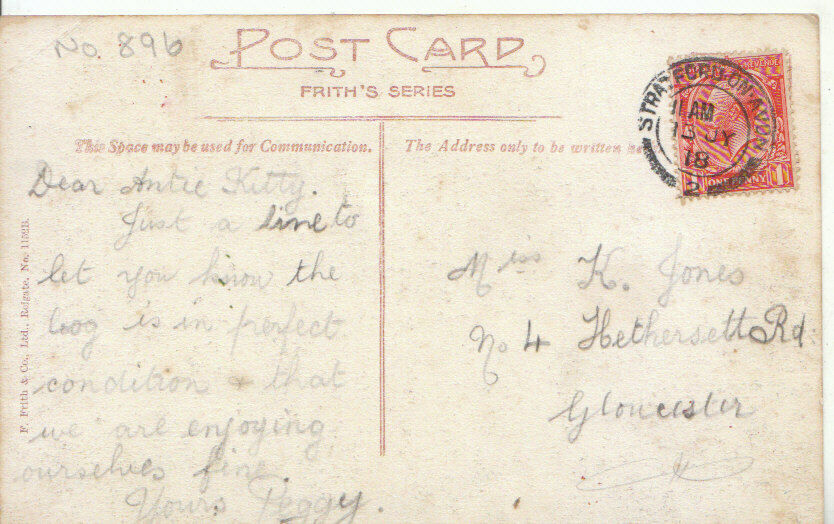 No. 896
POST CARD
FRITH'S SERIES
This Space may be used for Communication.
The Address only to be written he
STRATFORD-ON-AVON
11 AM
15 JY
18
2
REVENUE
ONE PENNY
Dear Antie Kitty.
Just a line to
let you know the
bog is in perfect
condition & that
we are enjoying
ourselves fine.
Yours Peggy.
Miss K. Jones
No 4 Hethersett Rd.
Gloucester
F. Frith & Co., Ltd., Reigate. No. 1152B.